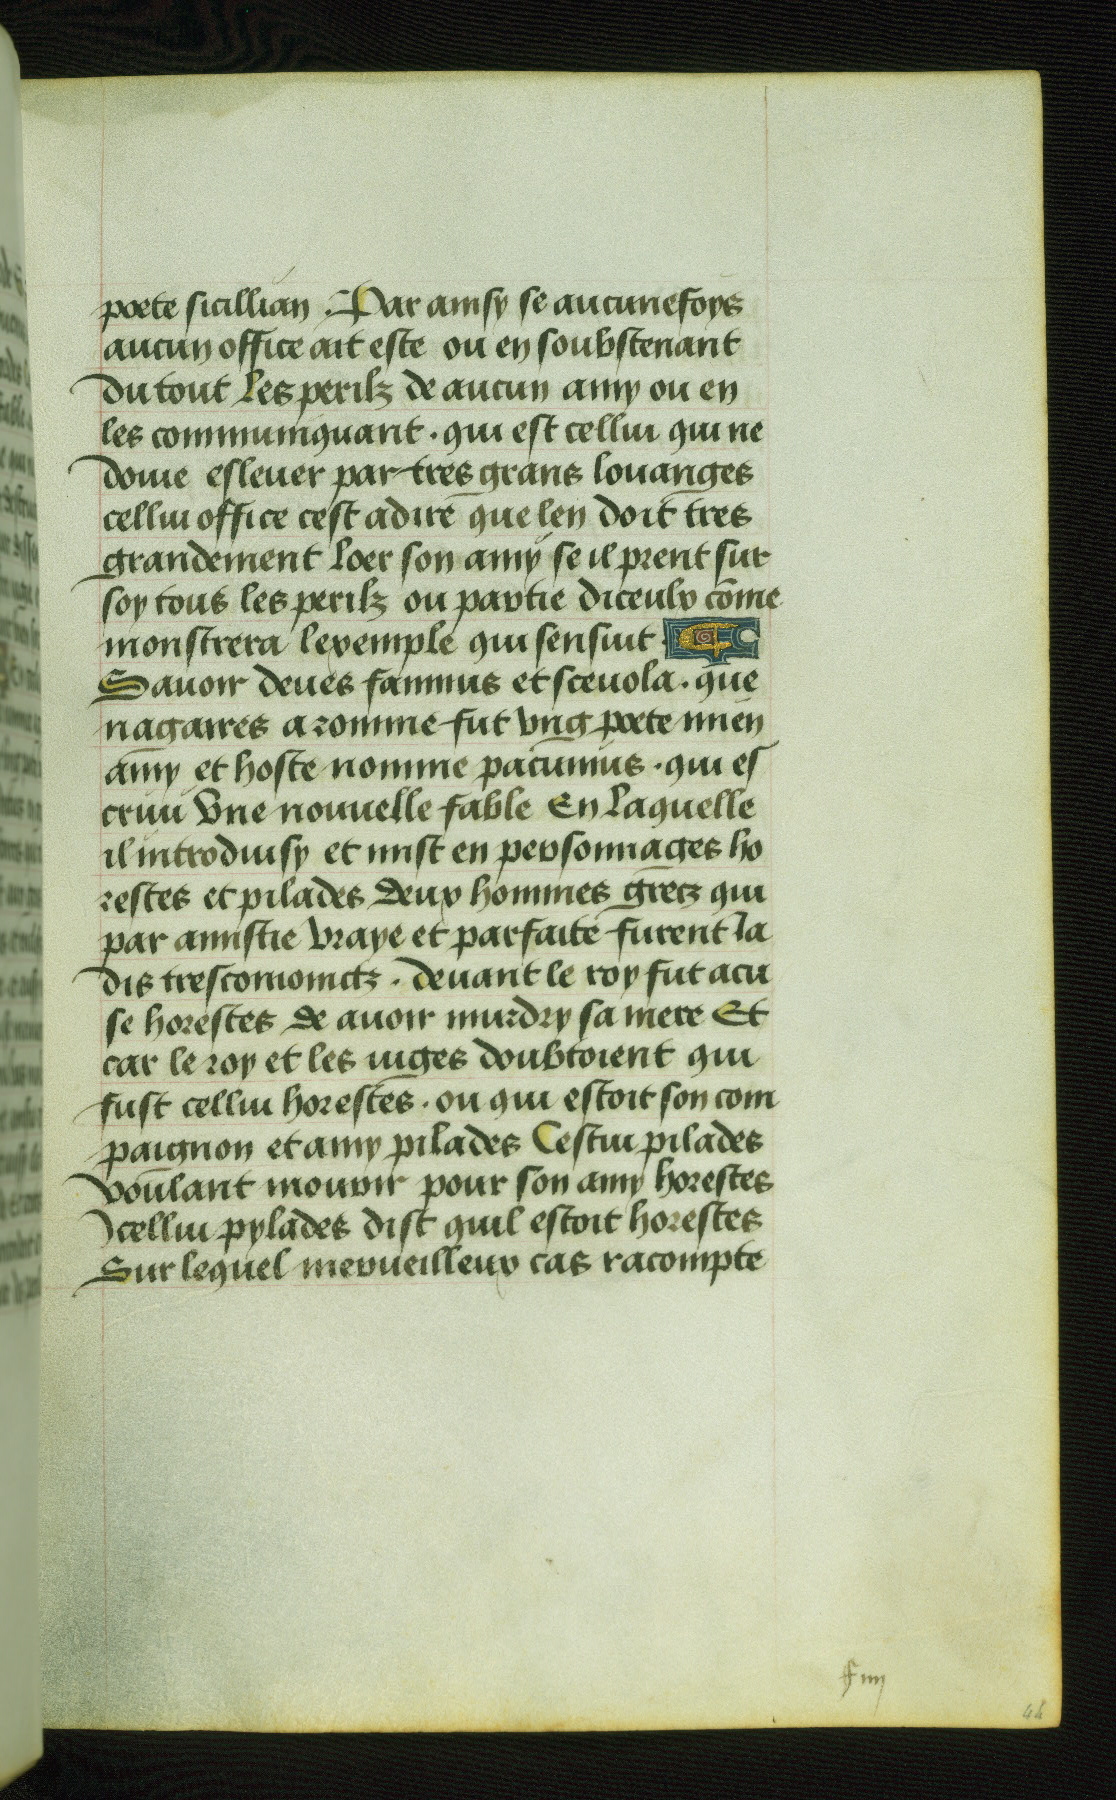 poete sicillian . Par ainsy se aucunefoys
aucun office ait este ou en soubstenant
du tout les perilz de aucun amy ou en
les communiquant . qui est cellui qui ne
doiue esleuer par tres grans louanges
cellui office cest adire que len doit tres
grandement loer son amy se il prent sur
soy tous les perilz ou partie diceulx cõme
monstrera lexemple qui sensuit
Sauoir deues fannius et sceuola . que
nagaires a romme fut vng poete mien
amy et hoste nomme pacuuius . qui es
criuit vne nouuelle fable En laquelle
il introduisy et mist en personnages ho
restes et pilades deux hommes grecz qui
par amistie vraye et parfaite furent Ja
dis tresconioinctz . deuant le roy fut acu
se horestes de auoir murdry sa mere Et
car le roy et les iuges doubtoient qui
fust cellui horestes . ou qui estoit son com
paignon et amy pilades Cestui pilades
voulant mourir pour son amy horestes
Jcellui pylades dist quil estoit horestes
Sur lequel merueilleux cas racompte
f iiij
44